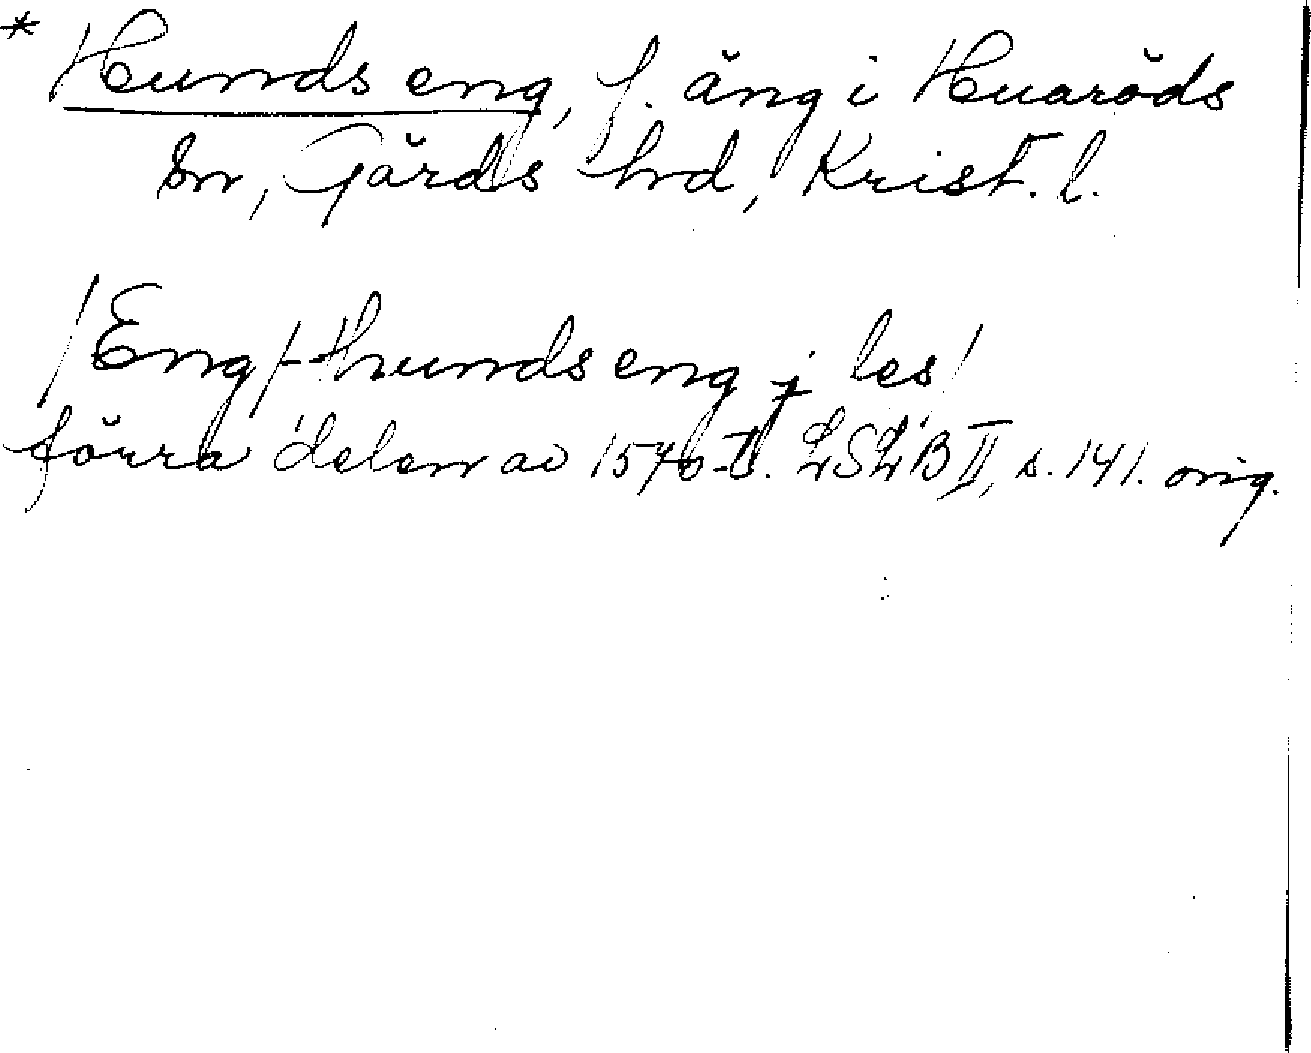 * Hunds eng, f. äng i Huaröds
sn, Gärds hd, Krist. l.
/Eng/-hunds eng j les/
förra delen av 1570-t. LSLB II, s. 141. orig.